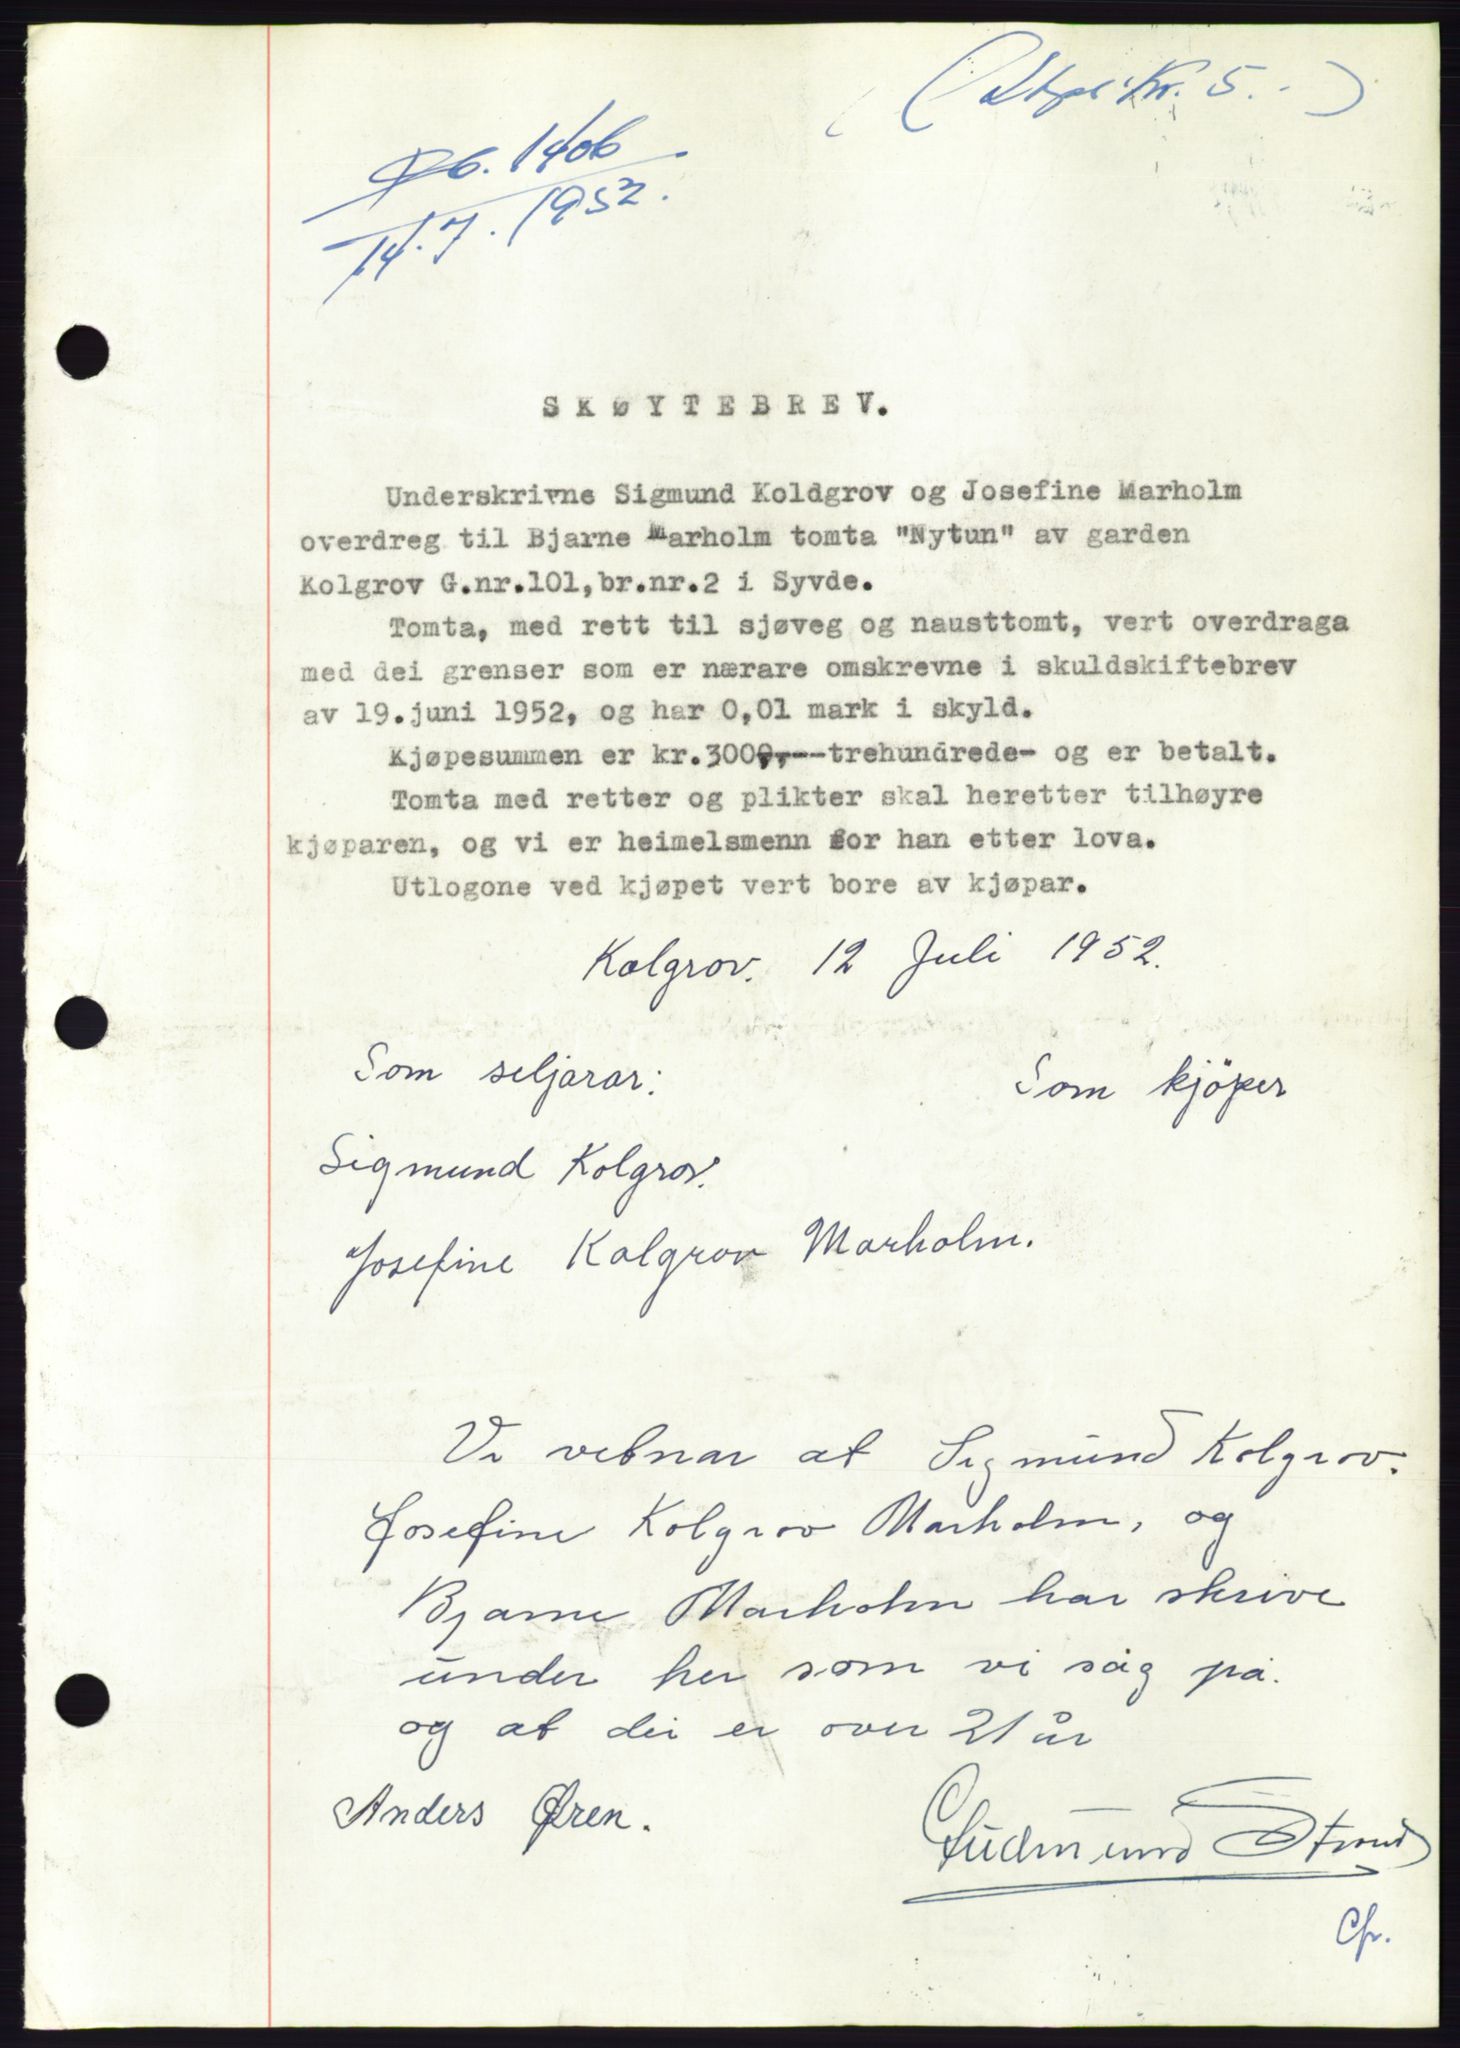 (Stpl. kr. 5.-)
Db. 1406
14.7.1952.
SKØYTEBREV.
Underskrivne Sigmund Koldgrov og Josefine Marholm
overdreg til Bjarne Marholm tomta "Nytun" av garden
Kolgrov G.nr.101,br.nr.2 i Syvde.
Tomta, med rett til sjøveg og nausttomt, vert overdraga
med dei grenser som er nærare omskrevne i skuldskiftebrev
av 19.juni 1952, og har 0,01 mark i skyld.
Kjøpesummen er kr.300,---trehundrede- og er betalt.
Tomta med retter og plikter skal heretter tilhøyre
kjøparen, og vi er heimelsmenn for han etter lova.
Utlogone ved kjøpet vert bore av kjøpar.
Kolgrov. 12 Juli 1952.
Som seljarar: Som kjöper
Sigmund Kolgrov.
Josefine Kolgrov Marholm.
Vi vetnar at Sigmund Kolgrov.
Josefine Kolgrov Marholm, og
Bjarne Marholm har skrive
under her som vi såg på.
og at dei er over 21 år
Anders Øren. Gudmund Strand